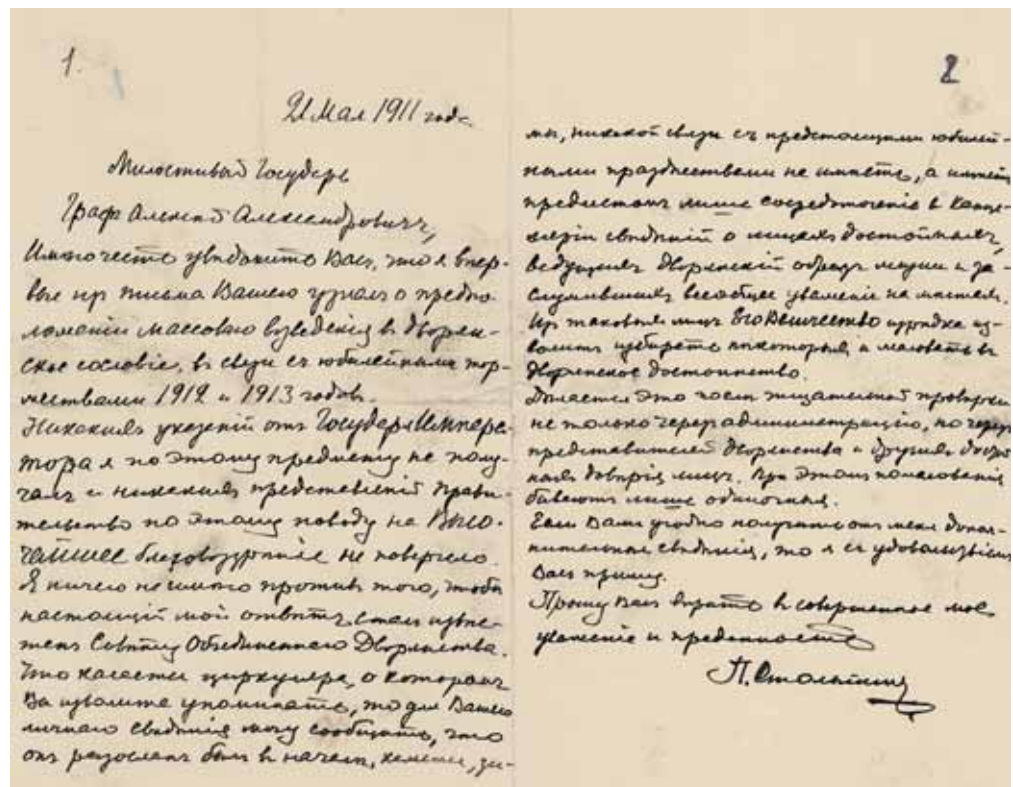 1.
21 Мая 1911 года
Милостивый Государь
Графъ Алексѣй Александровичъ,
Имѣю честь увѣдомить Васъ, что я впер-
вые изъ письма Вашего узналъ о предпо-
ложеніи массоваго возведенія въ дворян-
ское сословіе, въ связи съ юбилейными тор-
жествами 1912 и 1913 годовъ.
Никакихъ указаній отъ Государя Импера-
тора я по этому предмету не полу-
чалъ и никакихъ представленій Прави-
тельство по этому поводу на Высо-
чайшее благовоззрѣніе не повергло.
Я ничего не имѣю противъ того, чтобы
настоящій мой отвѣтъ сталъ извѣс-
тенъ Совѣту Объединеннаго Дворянства.
Что касается циркуляра, о которомъ
Вы изволите упоминать, то для Вашего
личнаго свѣдѣнія могу сообщить, что
онъ разосланъ былъ въ началѣ, кажется, зи-
2
мы, никакой связи съ предстоящими юбилей-
ными празднествами не имѣетъ, а имѣетъ
предметомъ лишь сосредоточеніе въ Канце-
ляріи свѣдѣній о лицахъ достойныхъ,
ведущихъ дворянскій образъ жизни и за-
служившихъ всеобщее уваженіе на мѣстахъ.
Изъ таковыхъ лицъ Его Величество изрѣдка из-
волитъ избирать нѣкоторыхъ и жаловать въ
дворянское достоинство.
Дѣлается это послѣ тщательной провѣрки
не только черезъ администрацію, но черезъ
представителей дворянства и другихъ достой-
ныхъ довѣрія лицъ. При этомъ пожалованія
бываютъ лишь одиночныя.
Если Вамъ угодно получить отъ меня допол-
нительныя свѣдѣнія, то я съ удовольствіемъ
Васъ приму.
Прошу Васъ вѣрить въ совершенное мое
уваженіе и преданность
П. Столыпинъ